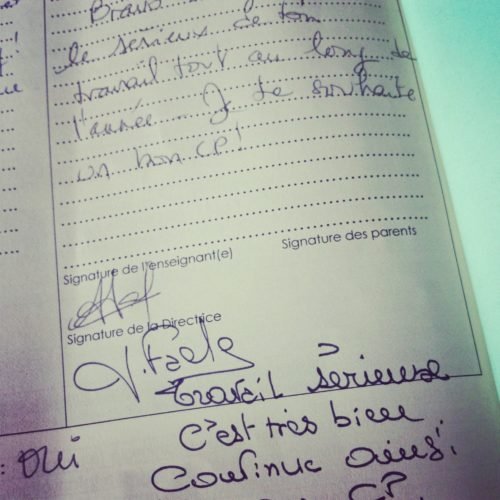 Bravo
le sérieux de ton
travail tout au long de
l'année. Je te souhaite
un bon CP!
Signature de l'enseignant(e)
Signature des parents
Signature de la Directrice
travail sérieuse
c'est très bien
continue ainsi
CP
: oui